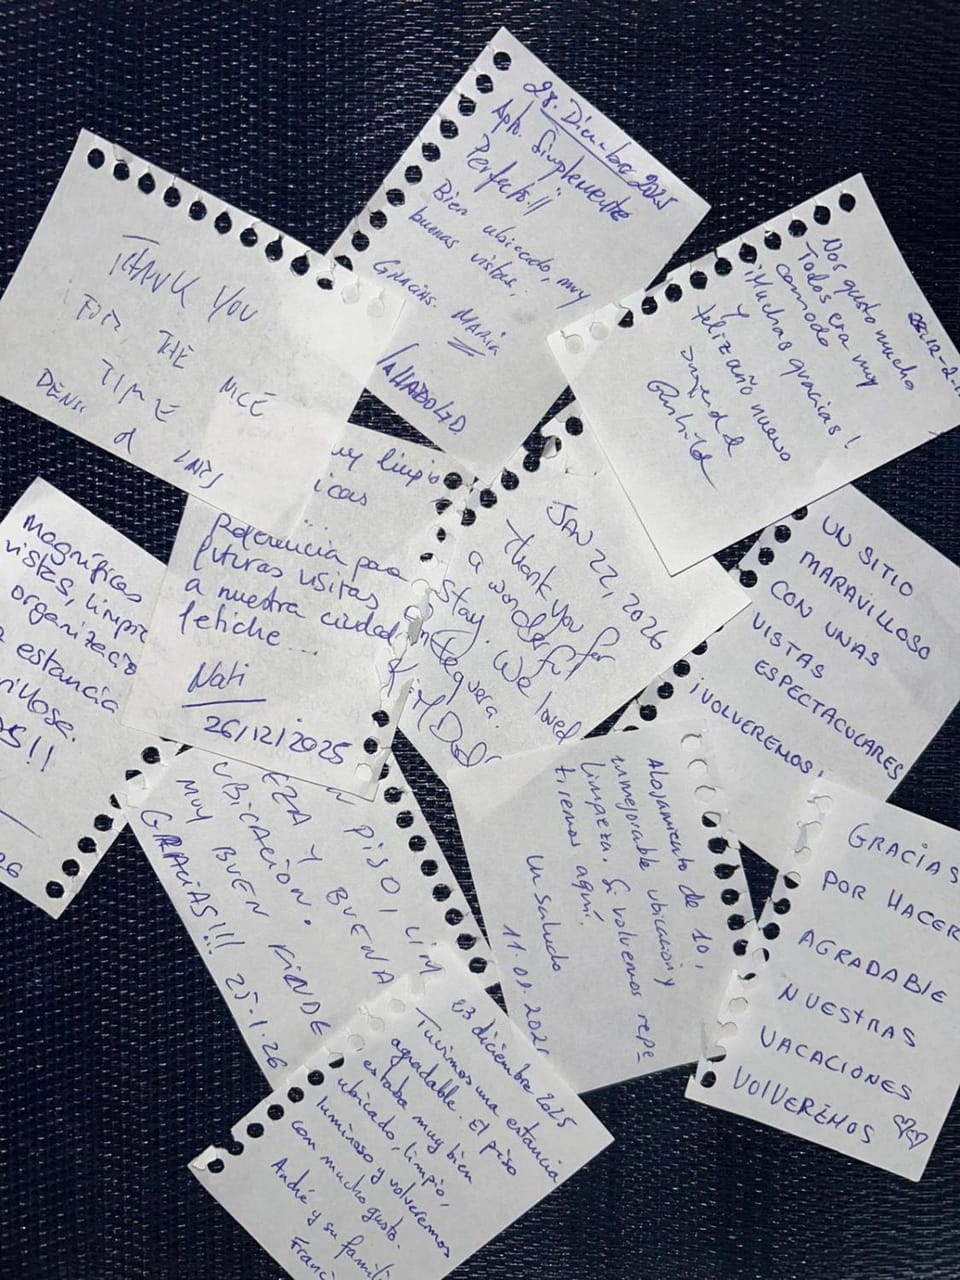 28. Diciembre 2025
Apto. Simplemente
Perfecto!!
Bien ubicado, muy
buenas vistas.
Gracias. MARIA
VALLADOLID.
THANK YOU
FOR THE NICE
TIME
DENIS &
Nos gusto mucho
Todos era muy
comodo
¡Muchas gracias!
y
feliz año nuevo
uy limpio
icas
...
Referencia para
futuras visitas
a nuestra ciudad
fetiche...
Nati
26/12/2025
JAN 22, 2026
Thank you for
a wonderful
stay. We loved
Antequera.
Magníficas
vistas, limpie
organizació
estancia
rillosa.
26
UN SITIO
MARAVILLOSO
CON UNAS
VISTAS
ESPECTACULARES
¡VOLVEREMOS!
N PISO, LIM
EZA Y BUENA
UBICACIÓN.
MUY BUEN FINDE
GRACIAS!!! 25-1-26
Alojamiento de 10,
inmejorable ubicación y
limpieza. Si volvemos repe
tiremos aquí.
Un saludo
GRACIAS
POR HACER
AGRADABLE
NUESTRAS
VACACIONES
VOLVEREMOS
23 diciembre 2025
Tuvimos una estancia
agradable. El piso
estaba muy bien
ubicado, limpio,
luminoso y volveremos
con mucho gusto.
André y su famili
Franc